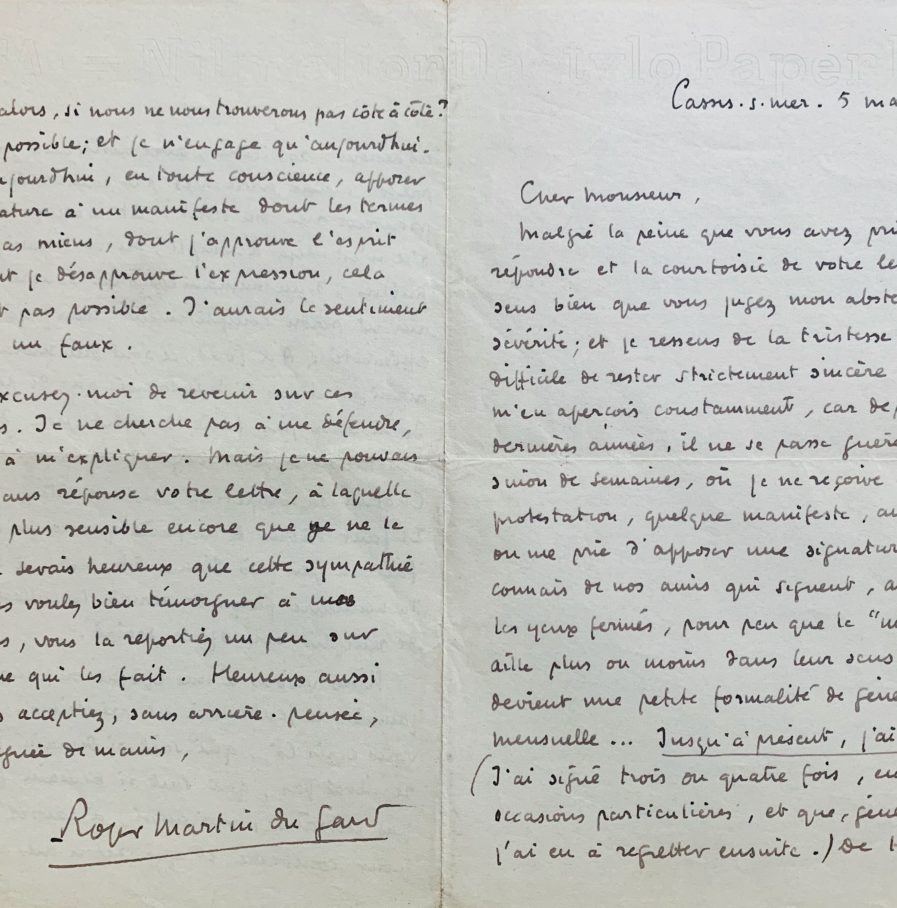 alors, si nous ne nous trouverons pas côte à côte?
possible; et je n'engage qu'aujourd'hui.
jourd'hui, en toute conscience, apposer
ature à un manifeste dont les termes
as miens, dont j'approuve l'esprit
nt je désapprouve l'expression, cela
t pas possible. J'aurais le sentiment
un faux.
xcusez-moi de revenir sur ces
s. Je ne cherche pas à me défendre,
à m'expliquer. Mais je ne pouvais
sans réponse votre lettre, à laquelle
plus sensible encore que je ne le
serais heureux que cette sympathie
s voulez bien témoigner à mes
s, vous la reportiez un peu sur
e qui les fait. Heureux aussi
s acceptiez, sans arrière-pensée,
gnée de mains,
Roger Martin du Gard
Cassis.s.mer. 5 ma
Cher Monsieur,
Malgré la peine que vous avez pri
répondre et la courtoisie de votre le
sens bien que vous jugez mon abste
sévérité; et je ressens de la tristesse
difficile de rester strictement sincère
m'en aperçois constamment, car dep
dernières années, il ne se passe guère
sinon de semaines, où je ne reçoive
protestation, quelque manifeste, au
on me prie d'apposer une signatur
connais de nos amis qui signent, a
les yeux fermés, pour peu que le "m
aille plus ou moins dans leur sens
devient une petite formalité de gene
mensuelle... Jusqu'à présent, j'ai
(J'ai signé trois ou quatre fois, en
occasions particulières, et que, géné
j'ai eu à regretter ensuite.) De